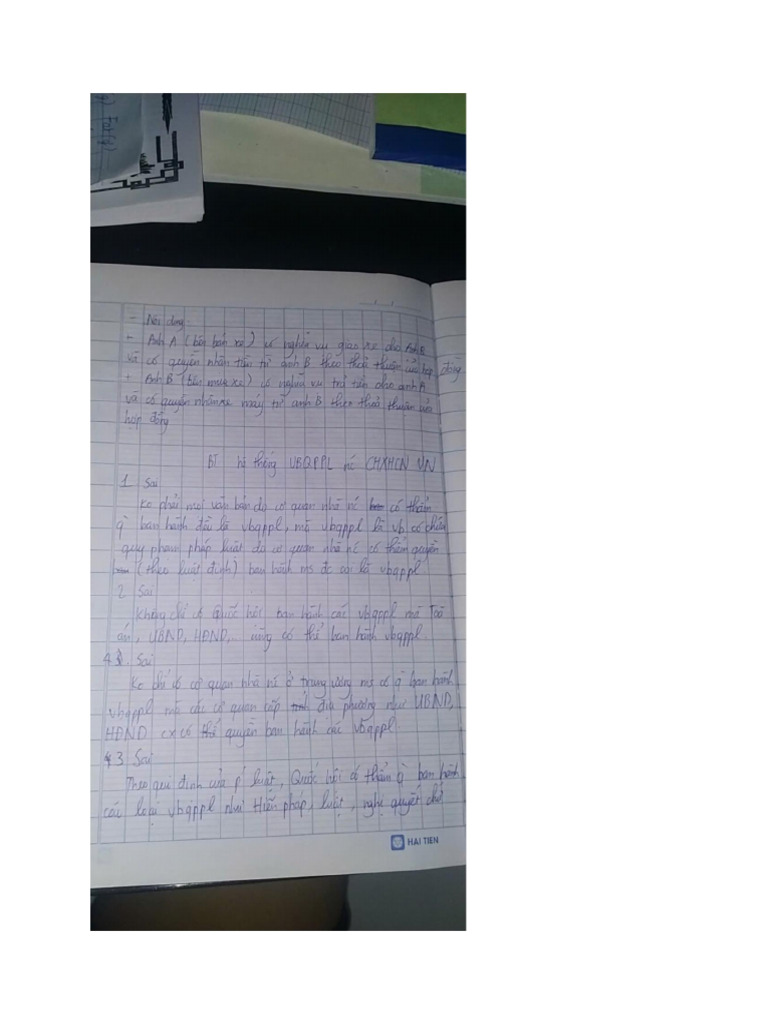 - Nội dung
+ Anh A (bên bán xe) có nghĩa vụ giao xe cho anh B
và có quyền nhận tiền từ anh B theo thoả thuận của hợp đồng
+ Anh B (bên mua xe) có nghĩa vụ trả tiền cho anh A
và có quyền nhận xe máy từ anh B theo thoả thuận của
hợp đồng
BT hệ thống VBQPPL nc CHXHCN VN
1. Sai
Ko phải mọi văn bản do cơ quan nhà nc có thẩm
q ban hành đều là vbqppl, mà vbqppl là vb có chứa
quy phạm pháp luật do cơ quan nhà nc có thẩm quyền
(theo luật định) ban hành ms đc coi là vbqppl
2. Sai
Không chỉ có Quốc hội ban hành các vbqppl mà Toà
án, UBND, HĐND,... cũng có thể ban hành vbqppl.
4. Sai
Ko chỉ có cơ quan nhà nc ở trung ương ms có q ban hành
vbqppl mà các cơ quan cấp địa phương như UBND,
HĐND cx có quyền ban hành các vbqppl.
3 Sai
Theo qui định của p luật, Quốc hội có thẩm q ban hành
các loại vbqppl như Hiến pháp, luật, nghị quyết chứ
HAI TIEN